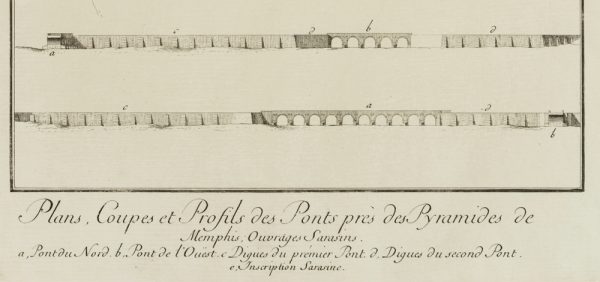 c d b d
a
c a d
b
Plans, Coupes et Profils des Ponts près des Pyramides de
Memphis, Ouvrages Sarasins.
a, Pont du Nord. b, Pont de l'Oüest. c Digues du prémier Pont. d, Digues du second Pont.
e, Inscription Sarasine.